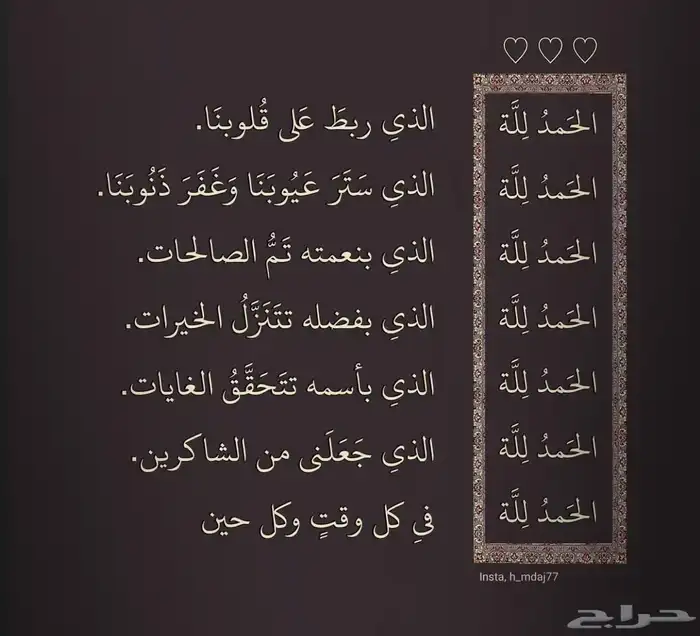 ♡ ♡ ♡
الحَمدُ لِلَّة الذيِ ربطَ عَلى قُلوبنَا.
الحَمدُ لِلَّة الذيِ سَتَرَ عَيُوبَنَا وَغَفَرَ ذَنُوبَنَا.
الحَمدُ لِلَّة الذيِ بنعمته تَمُّ الصالحات.
الحَمدُ لِلَّة الذيِ بفضله تتَنَزَّلُ الخيرات.
الحَمدُ لِلَّة الذيِ بأسمه تتَحَقَّقُ الغايات.
الحَمدُ لِلَّة الذيِ جَعَلَنى من الشاكرين.
الحَمدُ لِلَّة فيِ كل وقتٍ وكل حين
Insta, h_mdaj77
حراج